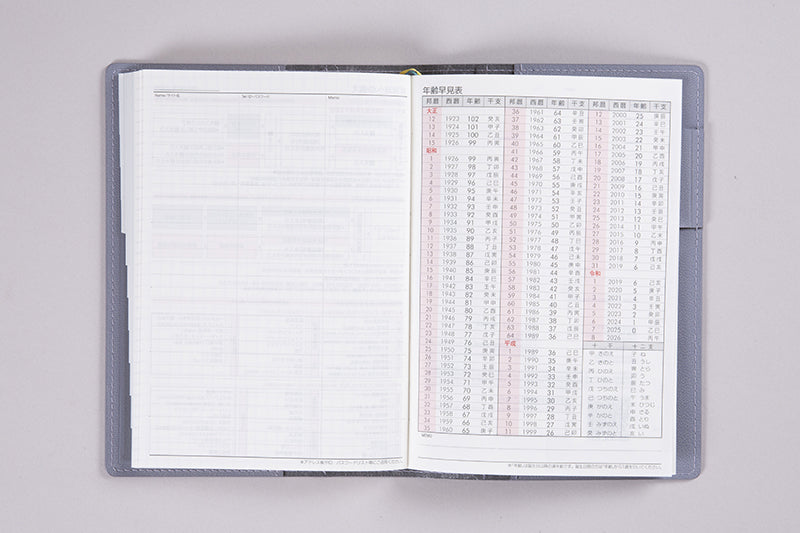 Name／サイト名 Tel／ID・パスワード Memo
年齢早見表
邦暦 西暦 年齢 干支
大正
12 1923 102 癸亥
13 1924 101 甲子
14 1925 100 乙丑
15 1926 99 丙寅
昭和
1 1926 99 丙寅
2 1927 98 丁卯
3 1928 97 戊辰
4 1929 96 己巳
5 1930 95 庚午
6 1931 94 辛未
7 1932 93 壬申
8 1933 92 癸酉
9 1934 91 甲戌
10 1935 90 乙亥
11 1936 89 丙子
12 1937 88 丁丑
13 1938 87 戊寅
14 1939 86 己卯
15 1940 85 庚辰
16 1941 84 辛巳
17 1942 83 壬午
18 1943 82 癸未
19 1944 81 甲申
20 1945 80 乙酉
21 1946 79 丙戌
22 1947 78 丁亥
23 1948 77 戊子
24 1949 76 己丑
25 1950 75 庚寅
26 1951 74 辛卯
27 1952 73 壬辰
28 1953 72 癸巳
29 1954 71 甲午
30 1955 70 乙未
31 1956 69 丙申
32 1957 68 丁酉
33 1958 67 戊戌
34 1959 66 己亥
35 1960 65 庚子
邦暦 西暦 年齢 干支
36 1961 64 辛丑
37 1962 63 壬寅
38 1963 62 癸卯
39 1964 61 甲辰
40 1965 60 乙巳
41 1966 59 丙午
42 1967 58 丁未
43 1968 57 戊申
44 1969 56 己酉
45 1970 55 庚戌
46 1971 54 辛亥
47 1972 53 壬子
48 1973 52 癸丑
49 1974 51 甲寅
50 1975 50 乙卯
51 1976 49 丙辰
52 1977 48 丁巳
53 1978 47 戊午
54 1979 46 己未
55 1980 45 庚申
56 1981 44 辛酉
57 1982 43 壬戌
58 1983 42 癸亥
59 1984 41 甲子
60 1985 40 乙丑
61 1986 39 丙寅
62 1987 38 丁卯
63 1988 37 戊辰
64 1989 36 己巳
平成
1 1989 36 己巳
2 1990 35 庚午
3 1991 34 辛未
4 1992 33 壬申
5 1993 32 癸酉
6 1994 31 甲戌
7 1995 30 乙亥
8 1996 29 丙子
9 1997 28 丁丑
10 1998 27 戊寅
11 1999 26 己卯
邦暦 西暦 年齢 干支
12 2000 25 庚辰
13 2001 24 辛巳
14 2002 23 壬午
15 2003 22 癸未
16 2004 21 甲申
17 2005 20 乙酉
18 2006 19 丙戌
19 2007 18 丁亥
20 2008 17 戊子
21 2009 16 己丑
22 2010 15 庚寅
23 2011 14 辛卯
24 2012 13 壬辰
25 2013 12 癸巳
26 2014 11 甲午
27 2015 10 乙未
28 2016 9 丙申
29 2017 8 丁酉
30 2018 7 戊戌
31 2019 6 己亥
令和
1 2019 6 己亥
2 2020 5 庚子
3 2021 4 辛丑
4 2022 3 壬寅
5 2023 2 癸卯
6 2024 1 甲辰
7 2025 0 乙巳
8 2026 丙午
十干 十二支
甲 きのえ 子 ね
乙 きのと 丑 うし
丙 ひのえ 寅 とら
丁 ひのと 卯 う
戊 つちのえ 辰 たつ
己 つちのと 巳 み
庚 かのえ 午 うま
辛 かのと 未 ひつじ
壬 みずのえ 申 さる
癸 みずのと 酉 とり
戌 いぬ
亥 い
MEMO